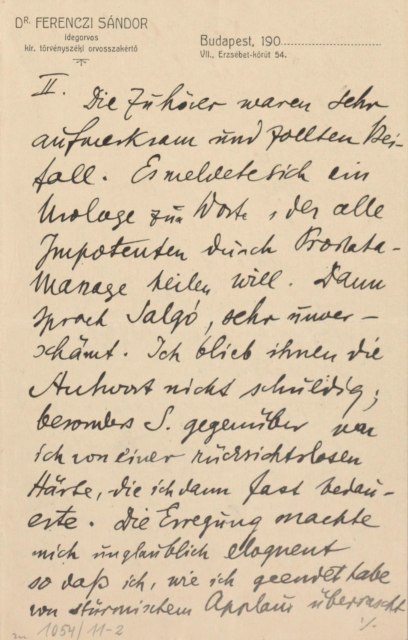 Dr. FERENCZI SÁNDOR
idegorvos
kir. törvényszéki orvosszakértő
Budapest, 190
VII., Erzsébet-körút 54.
II. Die Zuhörer waren sehr
aufmerksam und zollten Bei-
fall. Es meldete sich ein
Urologe zum Worte, der alle
Impotenten durch Prostata-
Massage heilen will. Dann
sprach Salgó, sehr unver-
schämt. Ich blieb ihnen die
Antwort nicht schuldig;
besonders S. gegenüber war
ich von einer rücksichtslosen
Härte, die ich dann fast bedau-
erte. Die Erregung machte
mich unglaublich eloquent
so daß ich, wie ich geendet habe
von stürmischem Applaus überrascht
1054/11-2